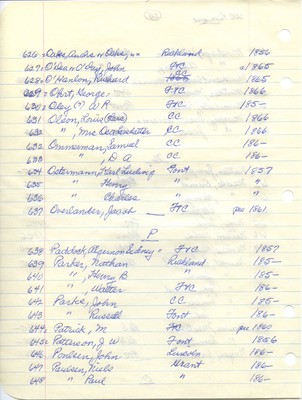 626. Oaks, Andre or Oakes, " Oakland 1856
627. O'Bear or O'Guy, John FC a1865
628. O'Hanlon, Richard CC 1865
629. Ohrt, George FC 1866
630. Oley (?) W R FC 185-
631 Olson, Louis (Lars) CC 1866
632 " , Mrs CC 1866
632 Ommerman, Samuel CC 186-
633 " , D A CC 186-
634 Ostermann, Karl Ludwig Font 1857
635 " Henry " "
636 " Charles " "
637 Overlander, Jacob FC pre 1861
P
638 Paddock, Algernon Sidney FC 1857
639 Parker, Nathan Richland 185-
640 " , Henry B " 185-
641 " , Walter FC 186-
642 Parks, John CC 185-
643 " Russell Font 186-
644 Patrick, M FC pre 1860
645 Patterson, J W Font 1856
646 Paulsen, John Lincoln 186-
647 Paulsen, Niels Grant 186-
648 " Paul " 186-